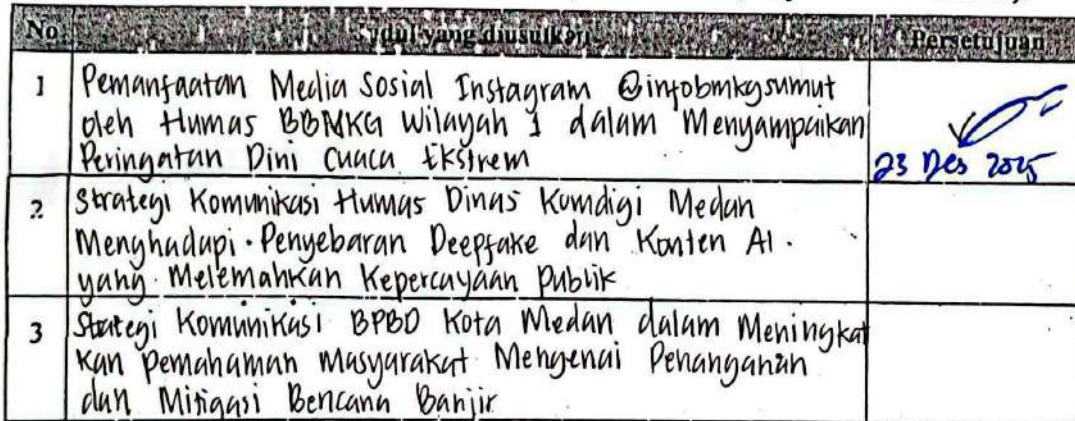 No. Judul yang diusulkan Persetujuan
1 Pemanfaatan Media Sosial Instagram @infobmkgsumut
oleh Humas BBMKG Wilayah 1 dalam Menyampaikan
Peringatan Dini Cuaca Ekstrem
23 Des 2025
2. Strategi Komunikasi Humas Dinas Komdigi Medan
Menghadapi Penyebaran Deepfake dan Konten AI
yang Melemahkan Kepercayaan Publik
3 Strategi Komunikasi BPBD Kota Medan dalam Meningkat
kan Pemahaman Masyarakat Mengenai Penanganan
dan Mitigasi Bencana Banjir